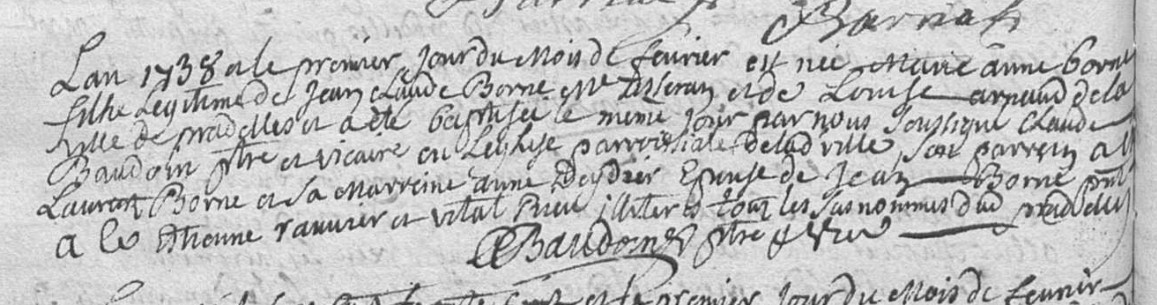 Barrial
Lan 1738 et le premier Jour du Mois de fevrier est née Marie anne borne
fille Legitime de Jean Claude Borne Me et de Louise arnaud de la
ville de pradelles et a été baptisée le meme Jour par nous soussigné Claude
Baudoin ptre et vicaire en Leglise parroissiale de lad ville, son parrein a
Laurent Borne et sa Marreine anne Deydier Epouse de Jean Borne pnt
a ce Etienne ranvier et vital Rieu illiteres tout les susnommes dud pradelles
Baudoin ptre vic
et le premier Jour du Mois de fevrier